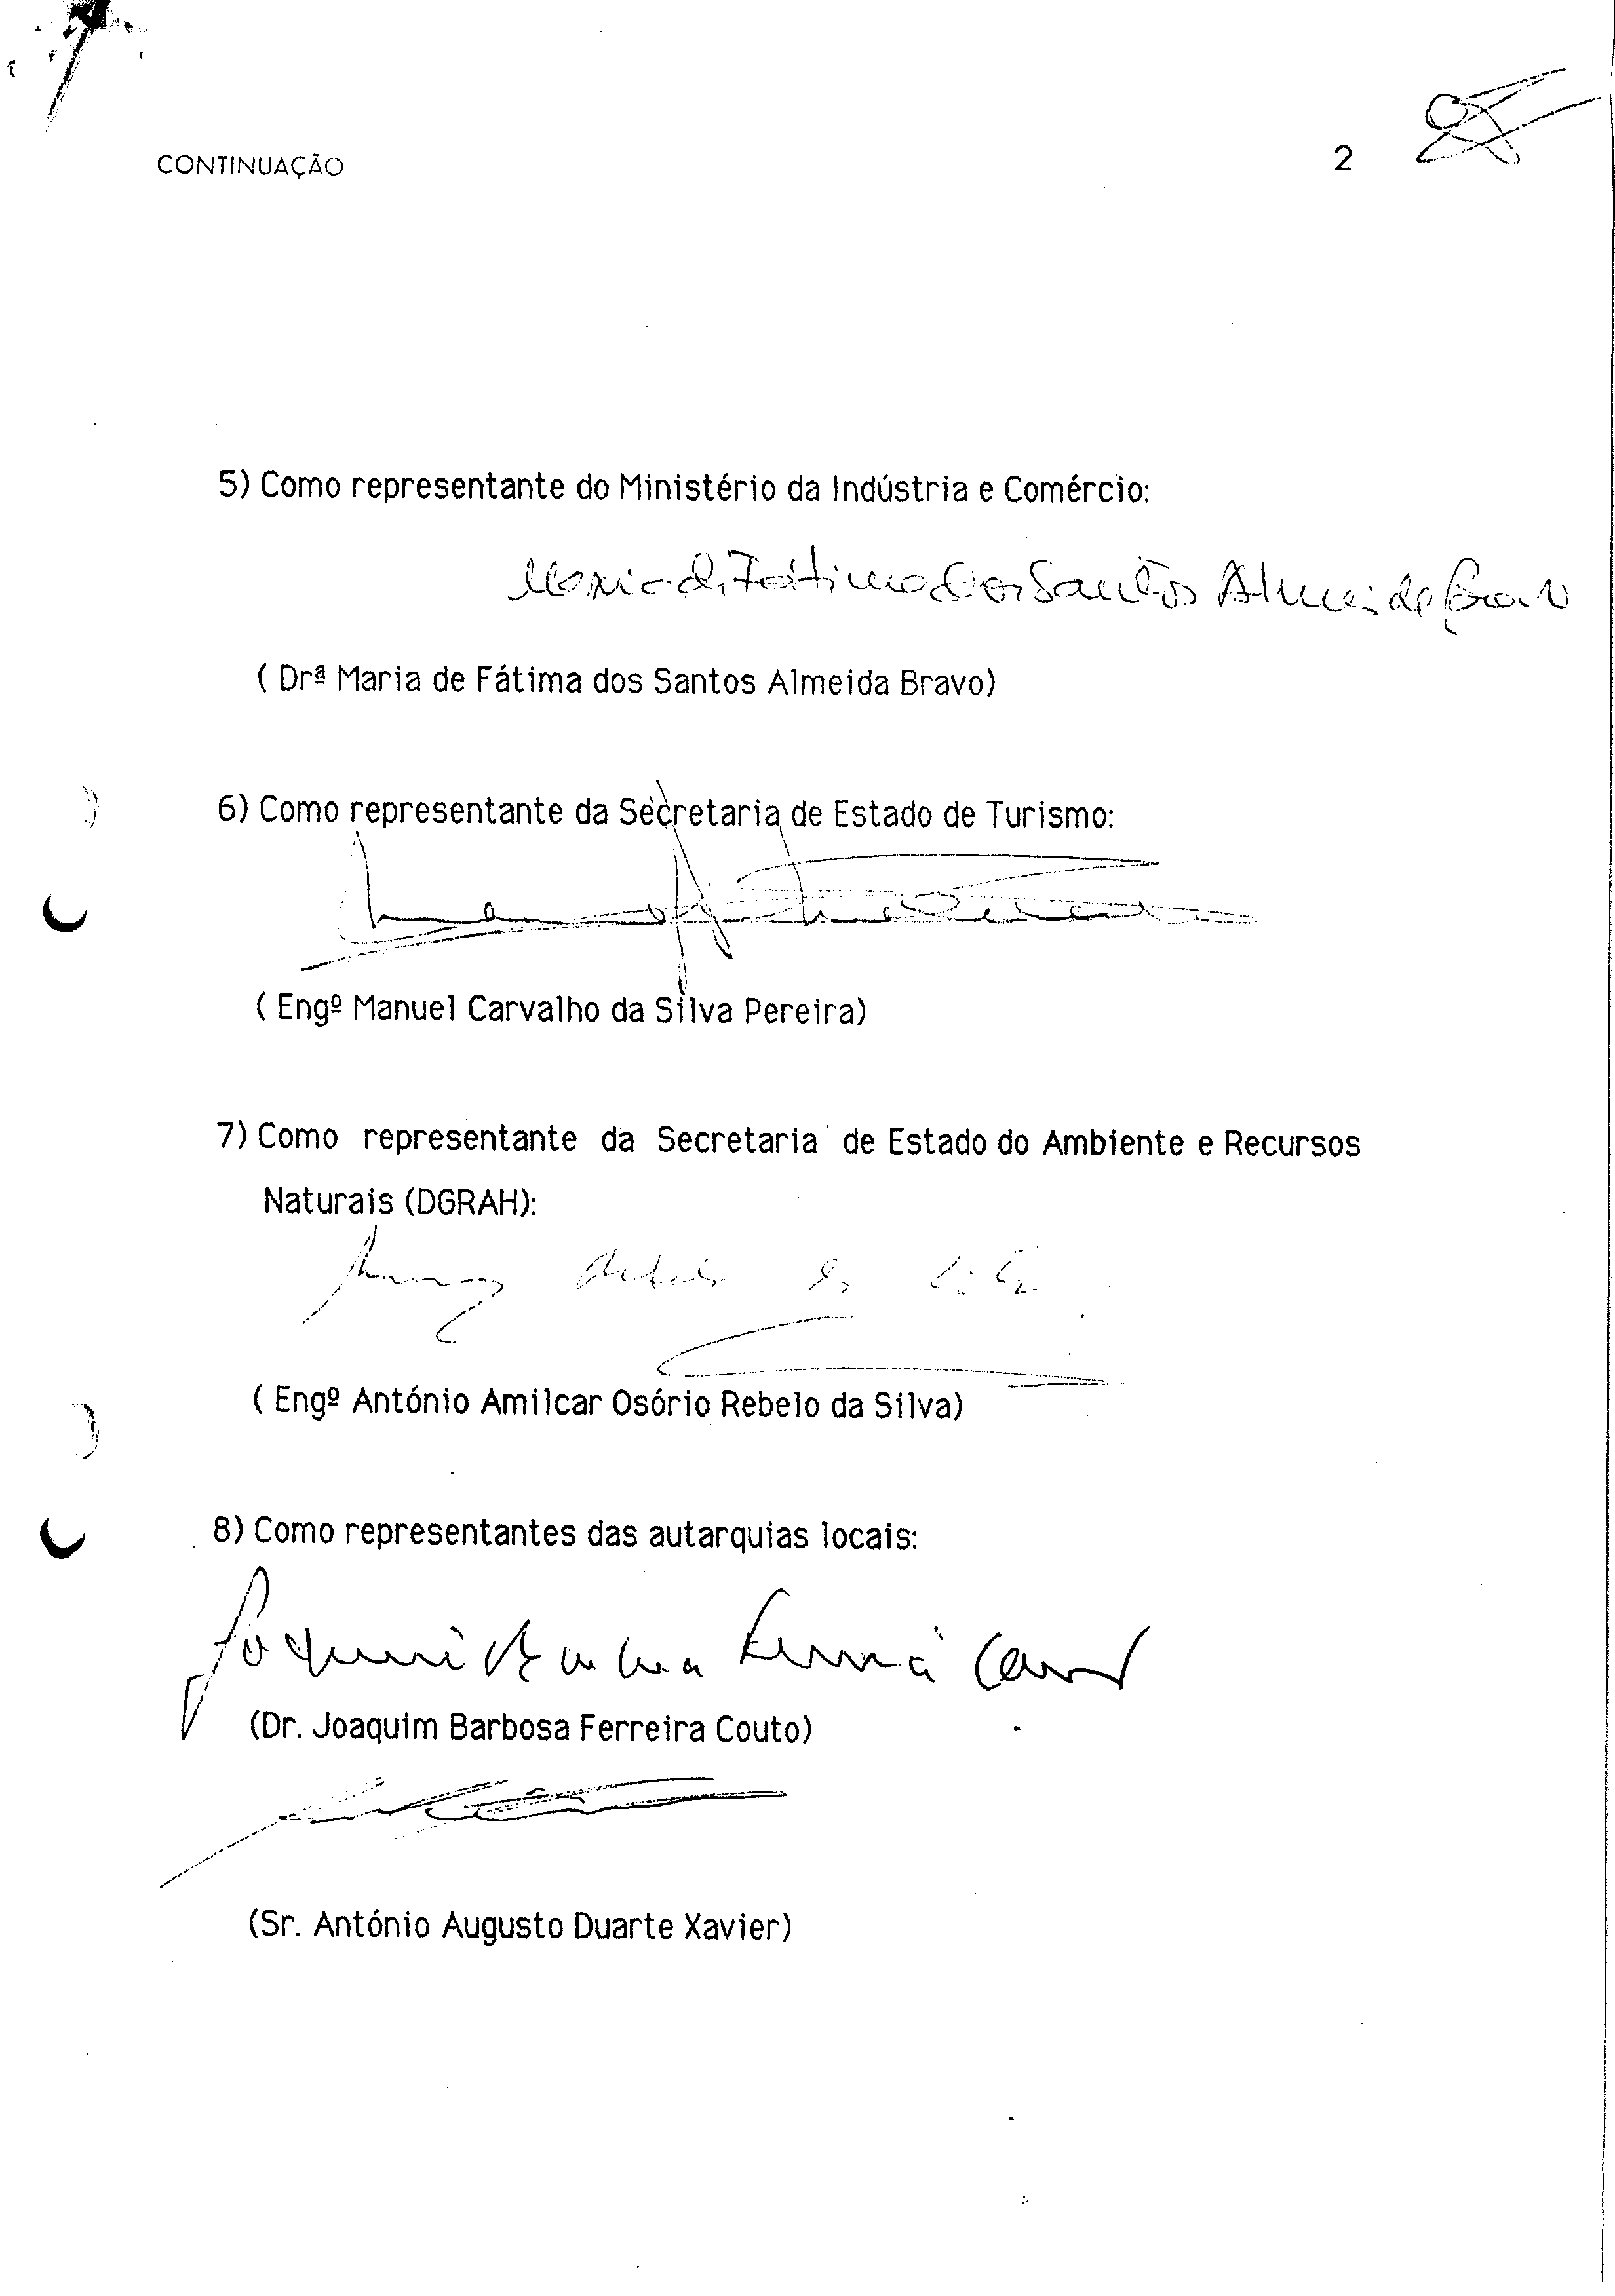 CONTINUAÇÃO 2
5) Como representante do Ministério da Indústria e Comércio:
Maria de Fátima dos Santos Almeida Bravo
( Drª Maria de Fátima dos Santos Almeida Bravo)
6) Como representante da Secretaria de Estado de Turismo:
( Engº Manuel Carvalho da Silva Pereira)
7) Como representante da Secretaria de Estado do Ambiente e Recursos
Naturais (DGRAH):
( Engº António Amilcar Osório Rebelo da Silva)
8) Como representantes das autarquias locais:
Joaquim Barbosa Ferreira Couto
(Dr. Joaquim Barbosa Ferreira Couto)
(Sr. António Augusto Duarte Xavier)